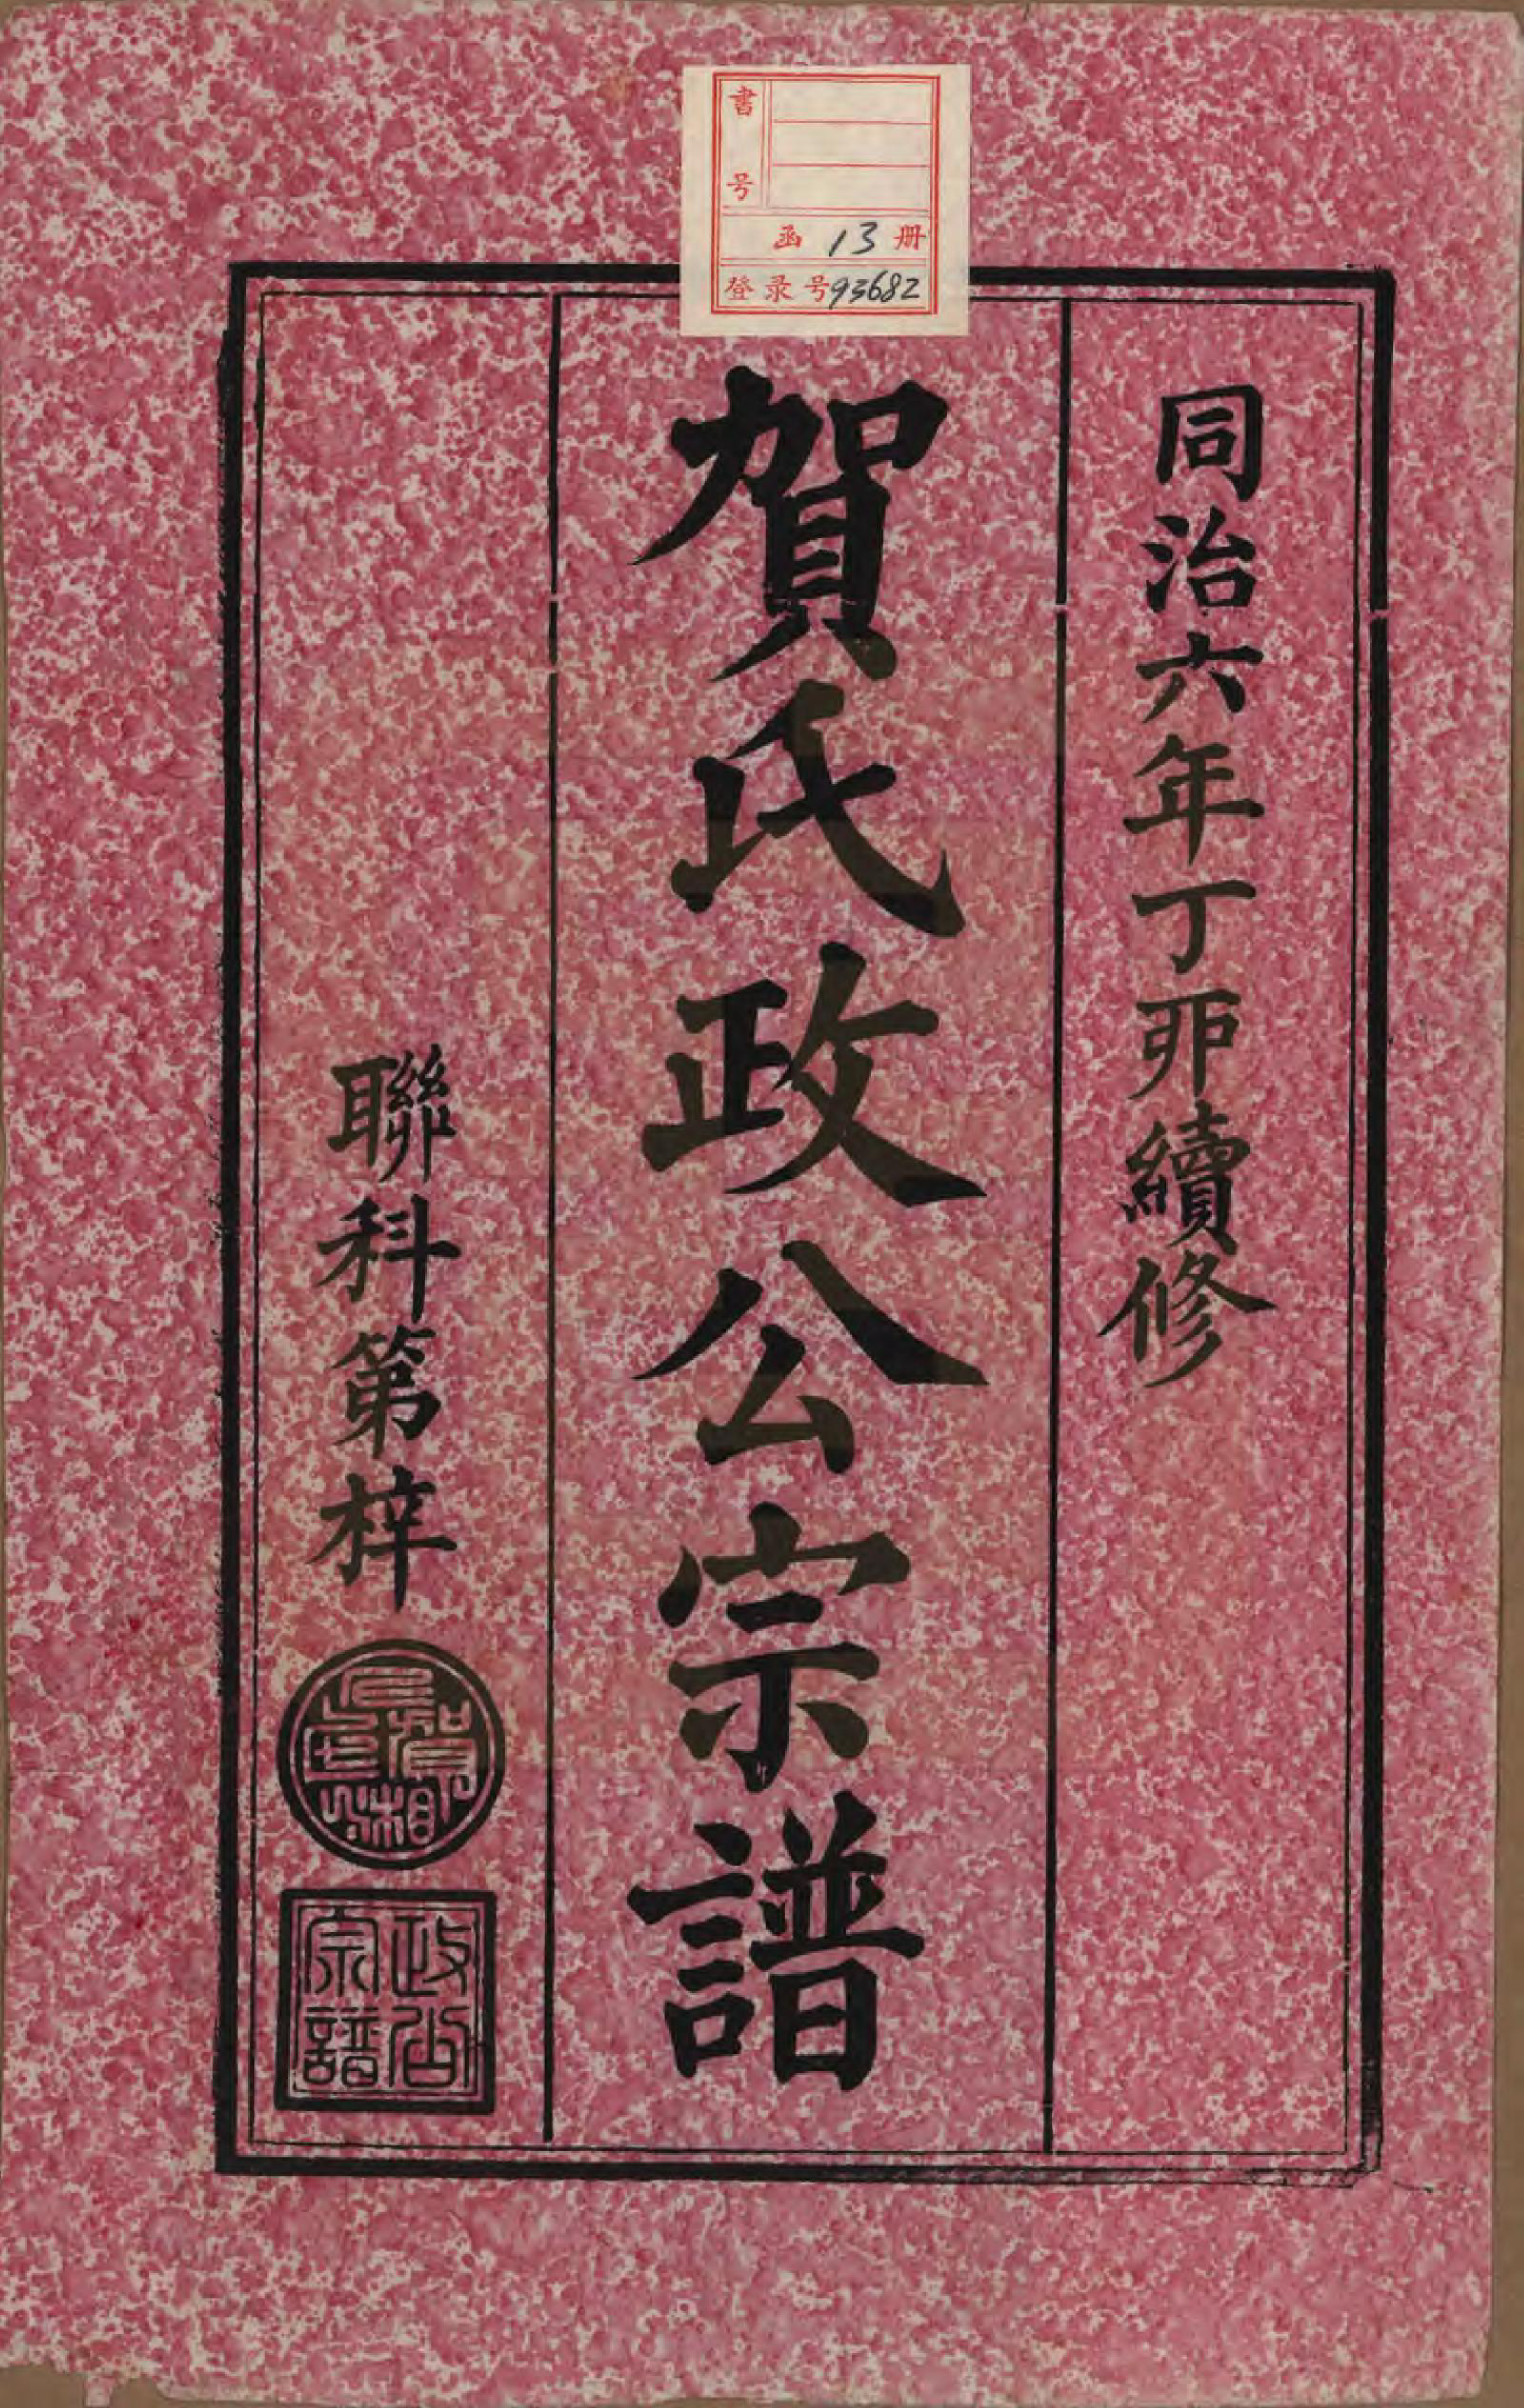 書号
函 13 册
登录号93682
同治六年丁夘續修
賀氏政公宗譜
聯科第梓
政公
宗譜